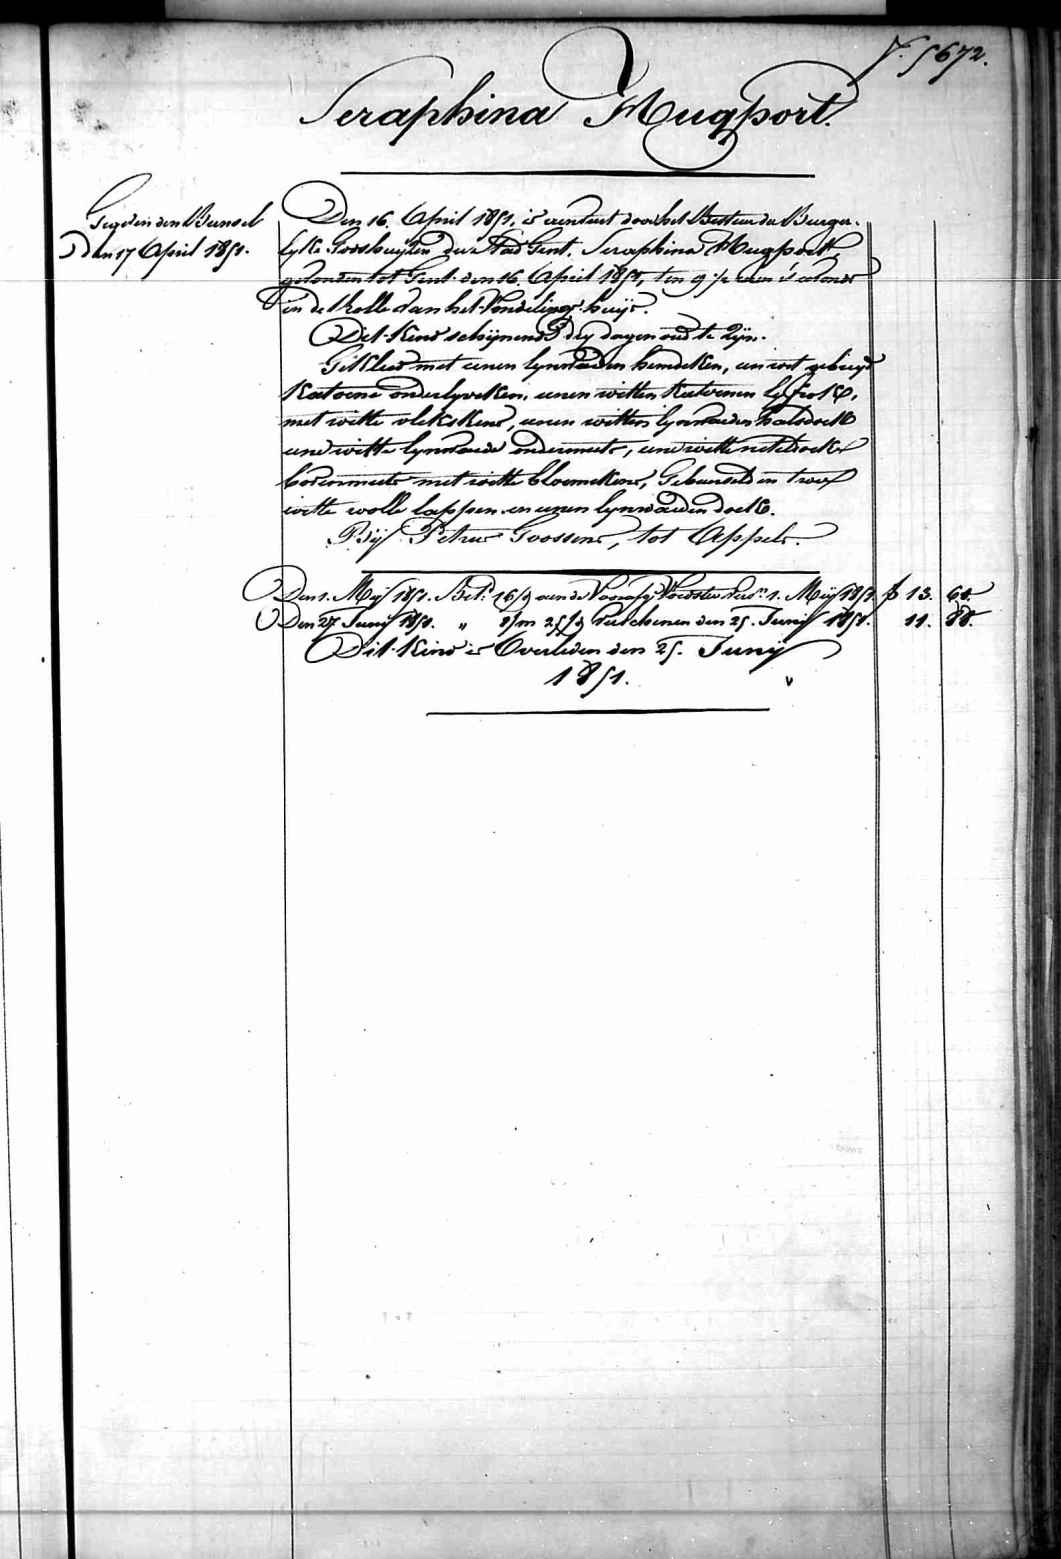 5672.
Seraphina Mugport.
den 17 April 1851.
Den 16. April 1851. is aenveert door het Bestier der Burger-
lyke Godshuyzen der Stad Gent. Seraphina Mugport,
gevonden tot Gent den 16. April 1851, ten 9 ½ uren 's avonds
in de Rolle van het Vondelingshuijs.
Dit Kind schijnende dry dagen oud te zijn.
Gekleed met eenen lynwaeden hemdeken, een rot gebiesd
Katoene onderlyveken, eenen witten Katoenen lyfrok,
met witte vlekskens, eenen witten lynwaeden halsdoek
eene witte lynwaede ondermuts, eene witte neteldoeke
bovenmuts met witte bloemekens, Gebunseld in twee
witte wolle lappen en eenen lynwaeden doek.
Bij Petrus Goossens, tot Appels.
Den 1. Mey 1851. Bet. 16/9 aen de Voedster 1. Mey 1851. f 13. 61.
Den 27 Juny 1851. " 25/9 verschenen den 25. Juny 1851. 11. 88.
Dit Kind is Overleden den 25. Juny
1851.